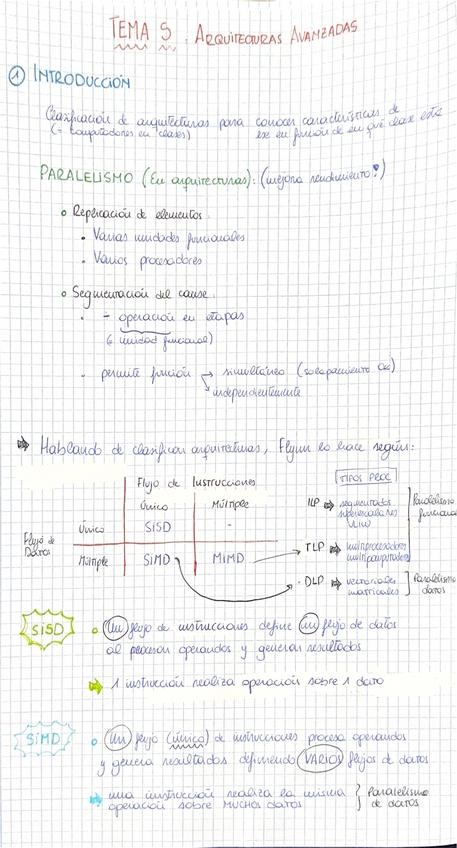 TEMA 5. ARQUITECTURAS AVANZADAS
① INTRODUCCIÓN
Clasificación de arquitecturas para conocer características de
(= Computadores en clases) ese en función de en qué clase esté
PARALELISMO (En arquitecturas): (mejora rendimiento?)
Replicación de elementos:
Varias unidades funcionales
Varios procesadores
Segmentación del cause:
- operación en etapas
(≤ unidad funcional)
permite función → simultáneo (solapamiento
→ independientemente
Hablando de clasificar arquitecturas, Flynn lo hace según:
Flujo de Instrucciones
TIPOS PROC
Único Múltiple
Flujo de Datos
Único SISD -
Múltiple SIMD MIMD
ILP ⇒ segmentados
superescalares
VLIW
Paralelismo funcional
TLP ⇒ multiprocesadores
multicomputadores
DLP ⇒ vectoriales
matriciales
Paralelismo datos
SISD
Un flujo de instrucciones define un flujo de datos
al procesar operandos y generar resultados
⇒ 1 instrucción realiza operación sobre 1 dato
SIMD
Un flujo (único) de instrucciones procesa operandos
y genera resultados definiendo VARIOS flujos de datos
⇒ una instrucción realiza la misma
operación sobre MUCHOS DATOS } Paralelismo
de datos